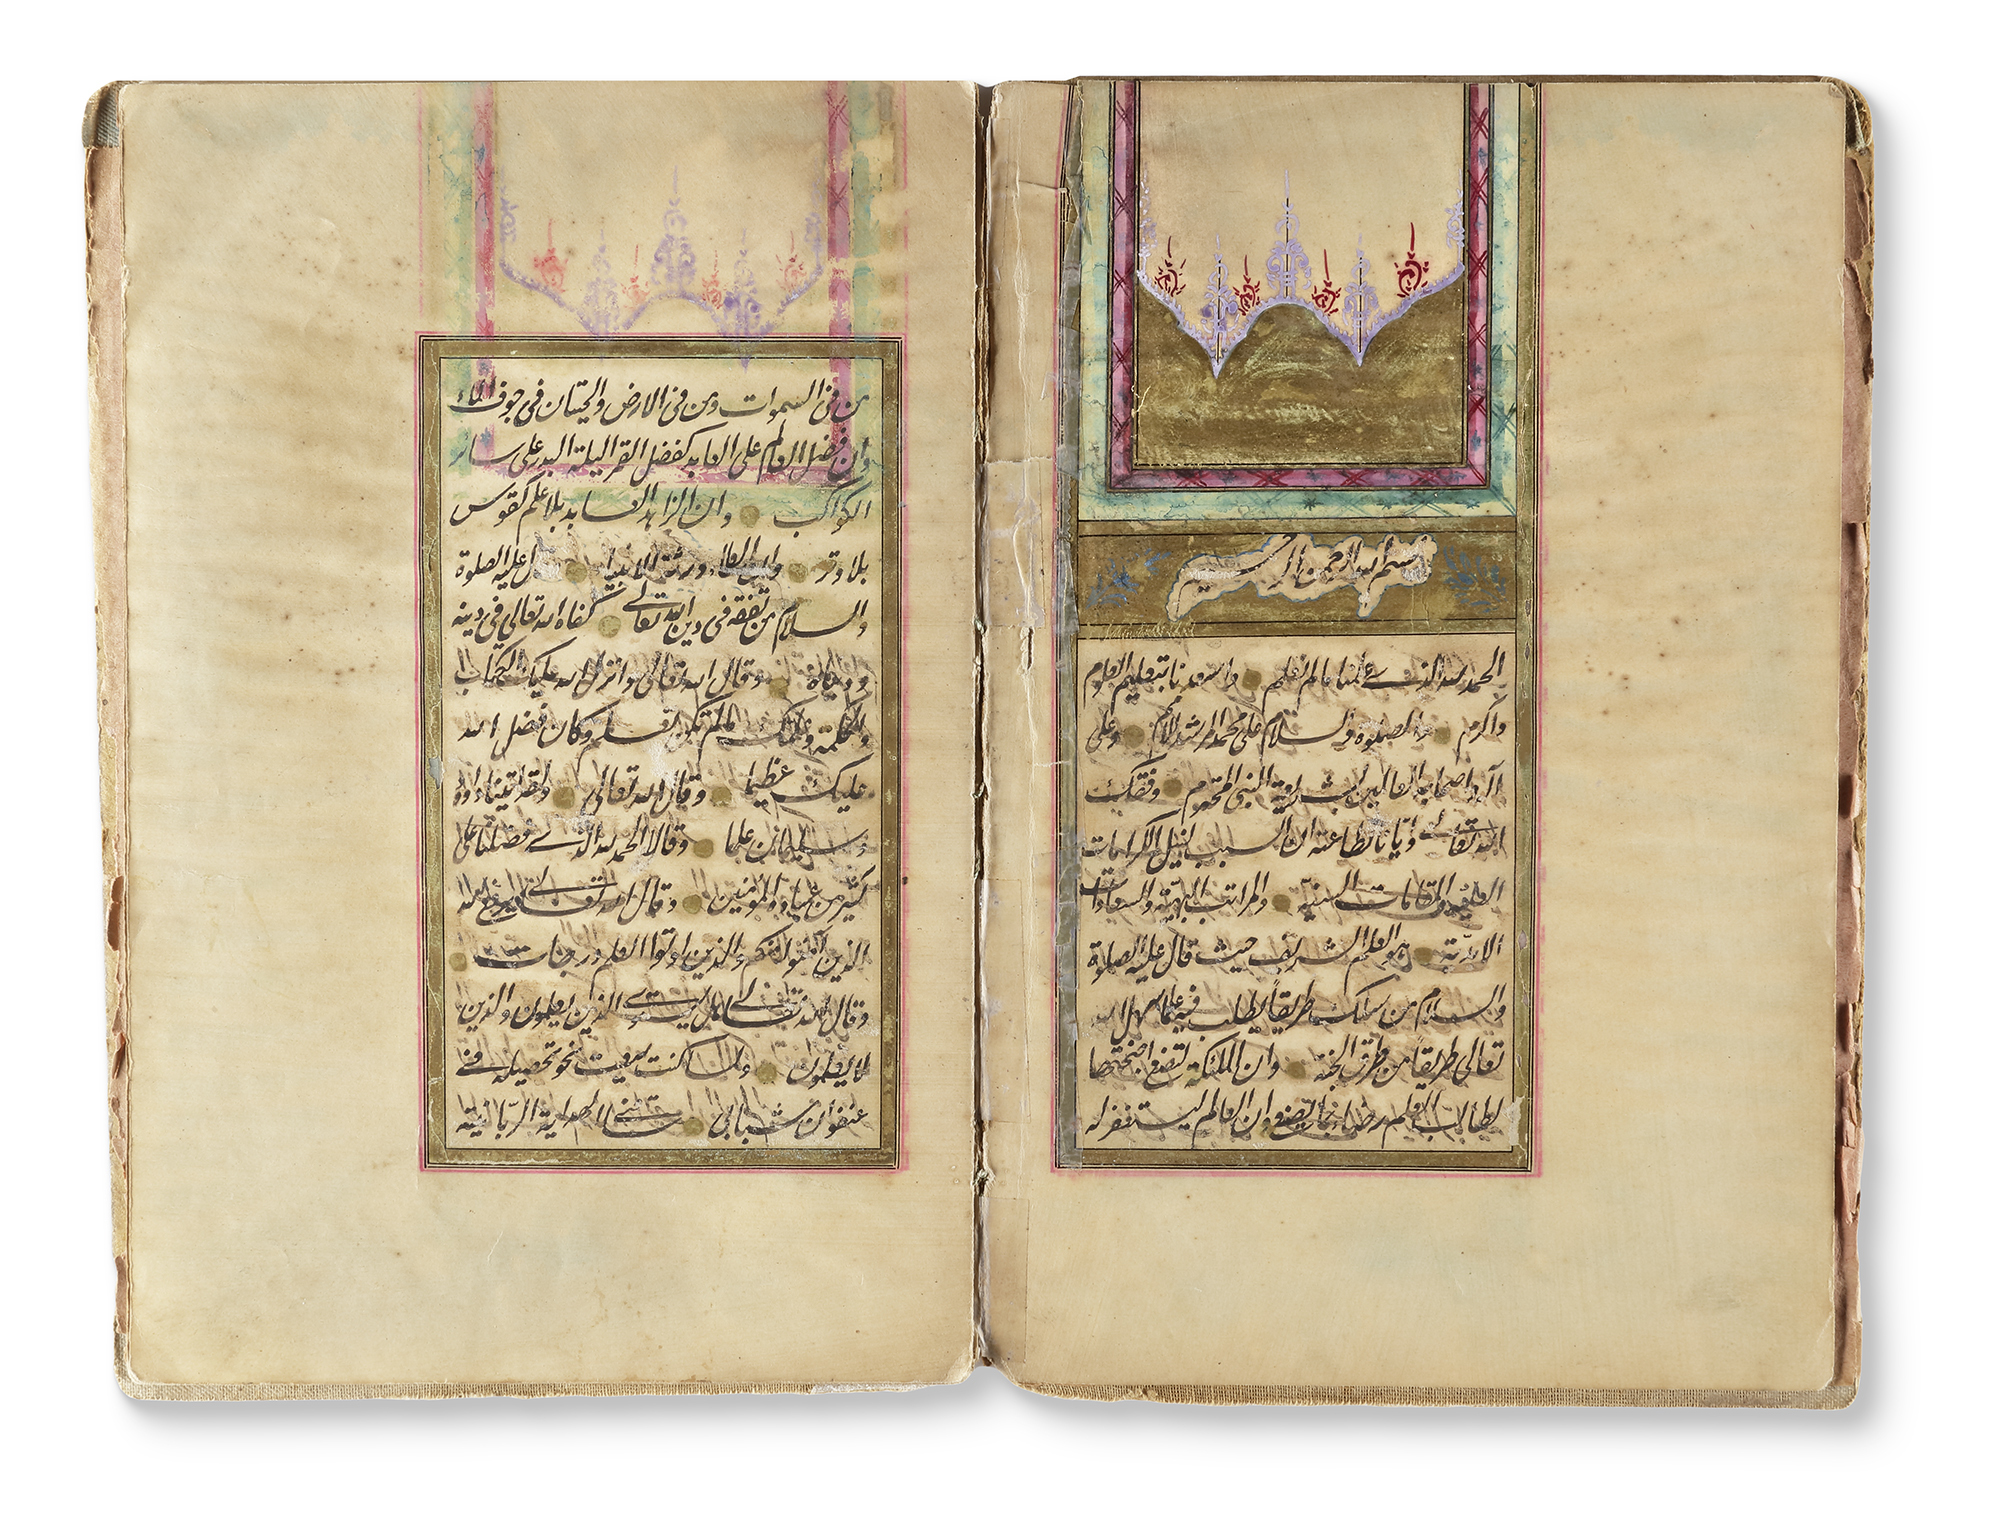 بسم الله الرحمن الرحيم
الحمد لله الذى علمنا مالم نعلم واسعدنا بتعليم العلوم
واكرم والصلوة والسلام على محمد المرشد الامم وعلى
آله واصحابه العالمين بشريعة النبى المحترم وفقك
الله تعالى وايانا لطاعته ان السبب لنيل الكرامات
العلية والمقامات السنية والمراتب البهية والسعادات
الابدية هو العلم الشريف حيث قال عليه الصلوة
والسلام من سلك طريقاً يطلب فيه علما سهل الله
تعالى طريقاً من طرق الجنة وان الملئكة لتضع اجنحتها
لطالب العلم رضاء بما يصنع وان العالم ليستغفر له
من فى السموات ومن فى الارض والحيتان فى جوف الماء
وان فضل العالم على العابد كفضل القمر اليلة البدر على سائر
الكواكب وان الزاهد العابد بلا علم كقوس
بلا وتر وان العلماء ورثة الانبياء قال عليه الصلوة
والسلام من تفقه فى دين الله تعالى كفاه الله تعالى فى دينه
ودنياه وقال الله تعالى وانزل الله عليك الكتاب
والحكمة وعلمك مالم تكن تعلم وكان فضل الله
عليك عظيما وقال الله تعالى ولقد اتيناه داود
وسليمان علما وقالا الحمد لله الذى فضلنا على
كثير من عباده المؤمنين وقال الله تعالى يرفع الله
الذين آمنوا منكم والذين اوتوا العلم درجات
وقال الله تعالى هل يستوى الذين يعلمون والذين
لا يعلمون ولما كنت سعيت نحو تحصيله فى
عنفوان شبابى ساقنى الهداية الربانية